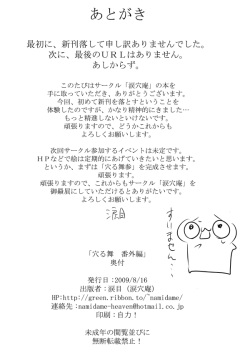 あとがき
最初に、新刊落して申し訳ありませんでした。
次に、最後のURLはありません。
あしからず。
このたびはサークル「涙穴庵」の本を
手に取っていただき、ありがとうございます。
今回、初めて新刊を落とすということを
体験したのですが、かなり精神的にきました…
もっと精進しないといけないです。
頑張りますので、どうかこれからも
よろしくお願いします。
次回サークル参加するイベントは未定です。
HPなどで絵は定期的にあげていきたいと思います。
まずは、「穴る舞参」を完成させます。
頑張ります。
頑張りますので、これからもサークル「涙穴庵」を
御贔屓にしていただけるとありがたいです。
よろしくお願いします。
涙目
すいません…
「穴る舞 番外編」
奥付
発行日:2009/8/16
出版者:涙目(涙穴庵)
HP:http://green.ribbon.to/~namidame/
連絡先:namidame-heaven@hotmail.co.jp
印刷:自力!
未成年の閲覧並びに
無断転載禁止!